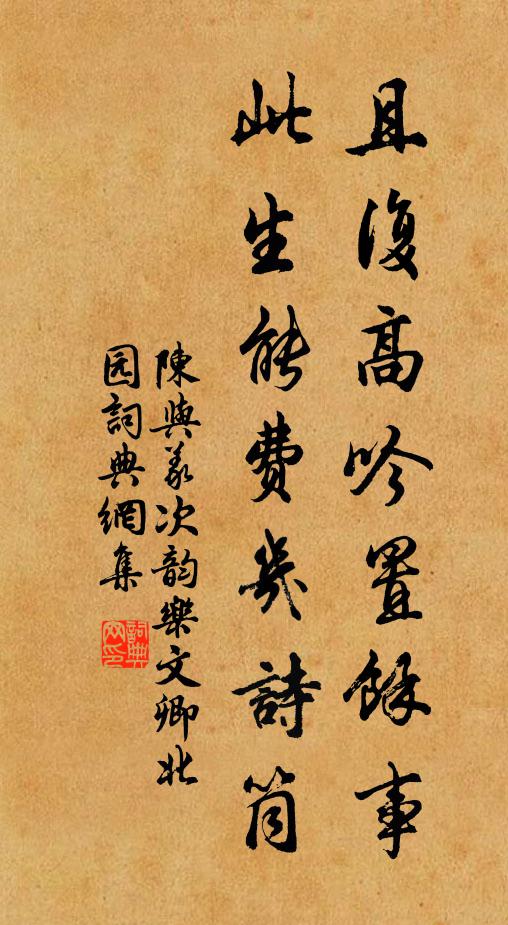 且復高吟置餘事
此生能費幾詩筒
陳與義次韵樂文卿北
园詞典網集
詞典网印